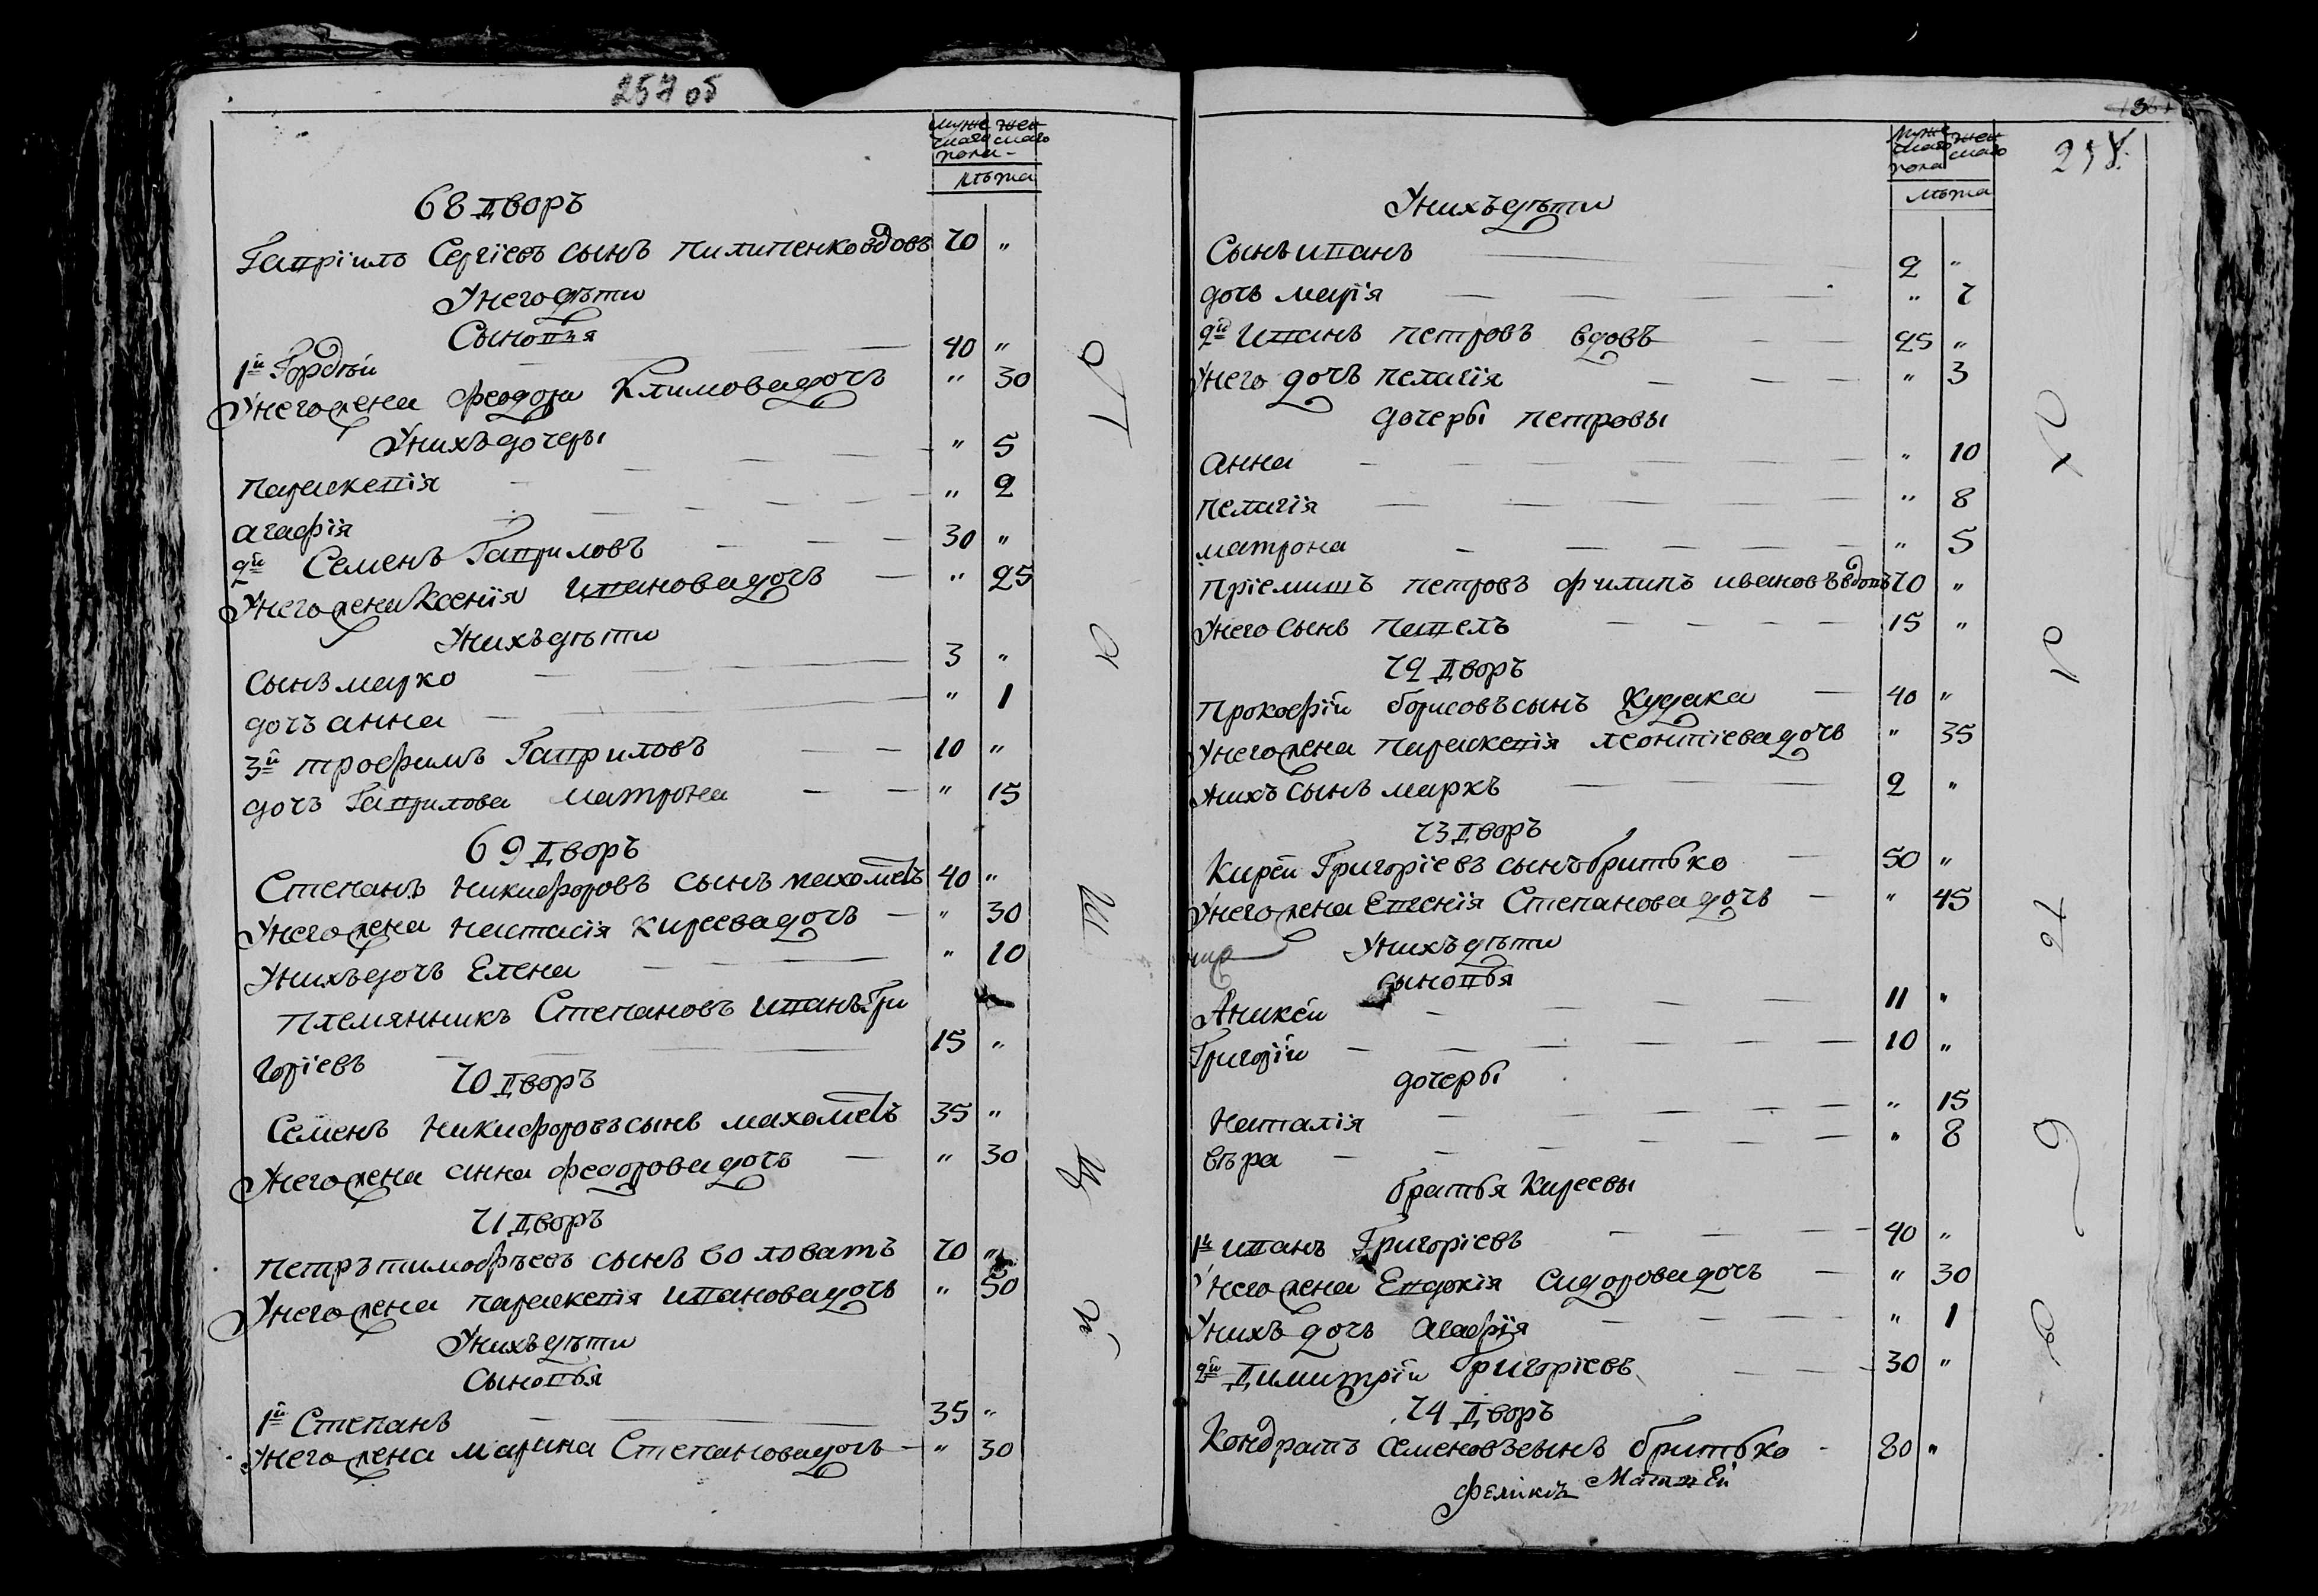 257 об
мужескаго пола
женскаго
лѣта
68 дворъ
Гавріилъ Сергіевъ сынъ пилипенко вдовъ 70 "
У него дѣти
Сыновя
1й Гордѣй 40 "
У него жена феодора Климова дочь " 30
У нихъ дочеры
параскевія " 5
агафія " 2
2й Семенъ Гавриловъ 30 "
У него жена Ксенія иванова дочь " 25
У нихъ дѣти
Сынъ марко 3 "
дочь анна " 1
3й трофимъ Гавриловъ 10 "
дочь Гаврилова матрона " 15
69 дворъ
Степанъ никифоровъ сынъ махометъ 40 "
У него жена настасія киреева дочь " 30
У нихъ дочь Елена " 10
племянникъ Степановъ иванъ Гри
горіевъ 15 "
70 дворъ
Семенъ никифоровъ сынъ махометъ 35 "
У него жена анна федорова дочь " 30
71 дворъ
петръ тимофѣевъ сынъ воловатъ 70 "
У него жена параскевія иванова дочь " 50
У нихъ дѣти
Сыновья
1й Степанъ 35 "
У него жена марина Степанова дочь " 30
258
мужескаго пола
женскаго
лѣта
У нихъ дѣти
Сынъ иванъ 2 "
дочь марія " 7
2й иванъ петровъ вдовъ 25 "
У него дочь пелагія " 3
дочерьі петровы
анна " 10
пелагія " 8
матрона " 5
пріемишъ петровъ филипъ ивановъ вдовъ 70 "
У него сынъ павелъ 15 "
72 дворъ
прокофій борисовъ сынъ Кудака 40 "
У него жена параскевія леонтіева дочь " 35
У нихъ сынъ маркъ 2 "
73 дворъ
Кирей Григоріевъ сынъ бритько 50 "
У него жена Евгенія Степанова дочь " 45
У нихъ дѣти
сыновья
Аникей 11 "
Григорій 10 "
дочерьі
наталія " 15
вѣра " 8
братья Киреевы
1й иванъ Григоріевъ 40 "
У него жена Евдокія Сидорова дочь " 30
У нихъ дочь агафія " 1
2й Димитрій Григоріевъ 30 "
74 дворъ
Кондратъ семеновъ сынъ бритько 80 "
Матвей